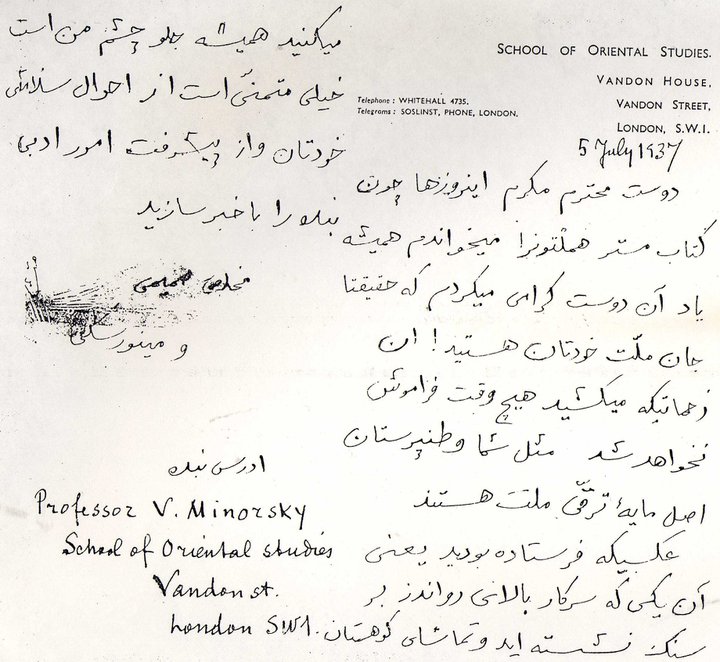 SCHOOL OF ORIENTAL STUDIES.
VANDON HOUSE,
Telephone : WHITEHALL 4735.
VANDON STREET,
Telegrams : SOSLINST, PHONE, LONDON.
LONDON, S.W.1.
5 July 1937
دوست محترم مکرم اینروزها چون
کتاب مستر هملتونرا میخواندم همیشه
یاد آن دوست گرامی میکردم که حقیقتا
جان ملّت خودتان هستید! ان
زحماتیکه میکشید هیچ وقت فراموش
نخواهد شد مثل شما وطنپرستان
اصل مایهٔ ترقّی ملت هستند
عکسیکه فرستاده بودید یعنی
آن یکی که سرکار بالای رواندز بر
سنگ نشسته اید و تماشای کوهستان
میکنید همیشه جلو چشم من است
خیلی متمنّی است از احوال سلامتی
خودتان و از پیشرفت امور ادبی
بنده را با خبر سازید
مخلص صمیمی
و مینورسکی
ادرس بنده
Professor V. Minorsky
School of Oriental studies
Vandon st.
London SW1.